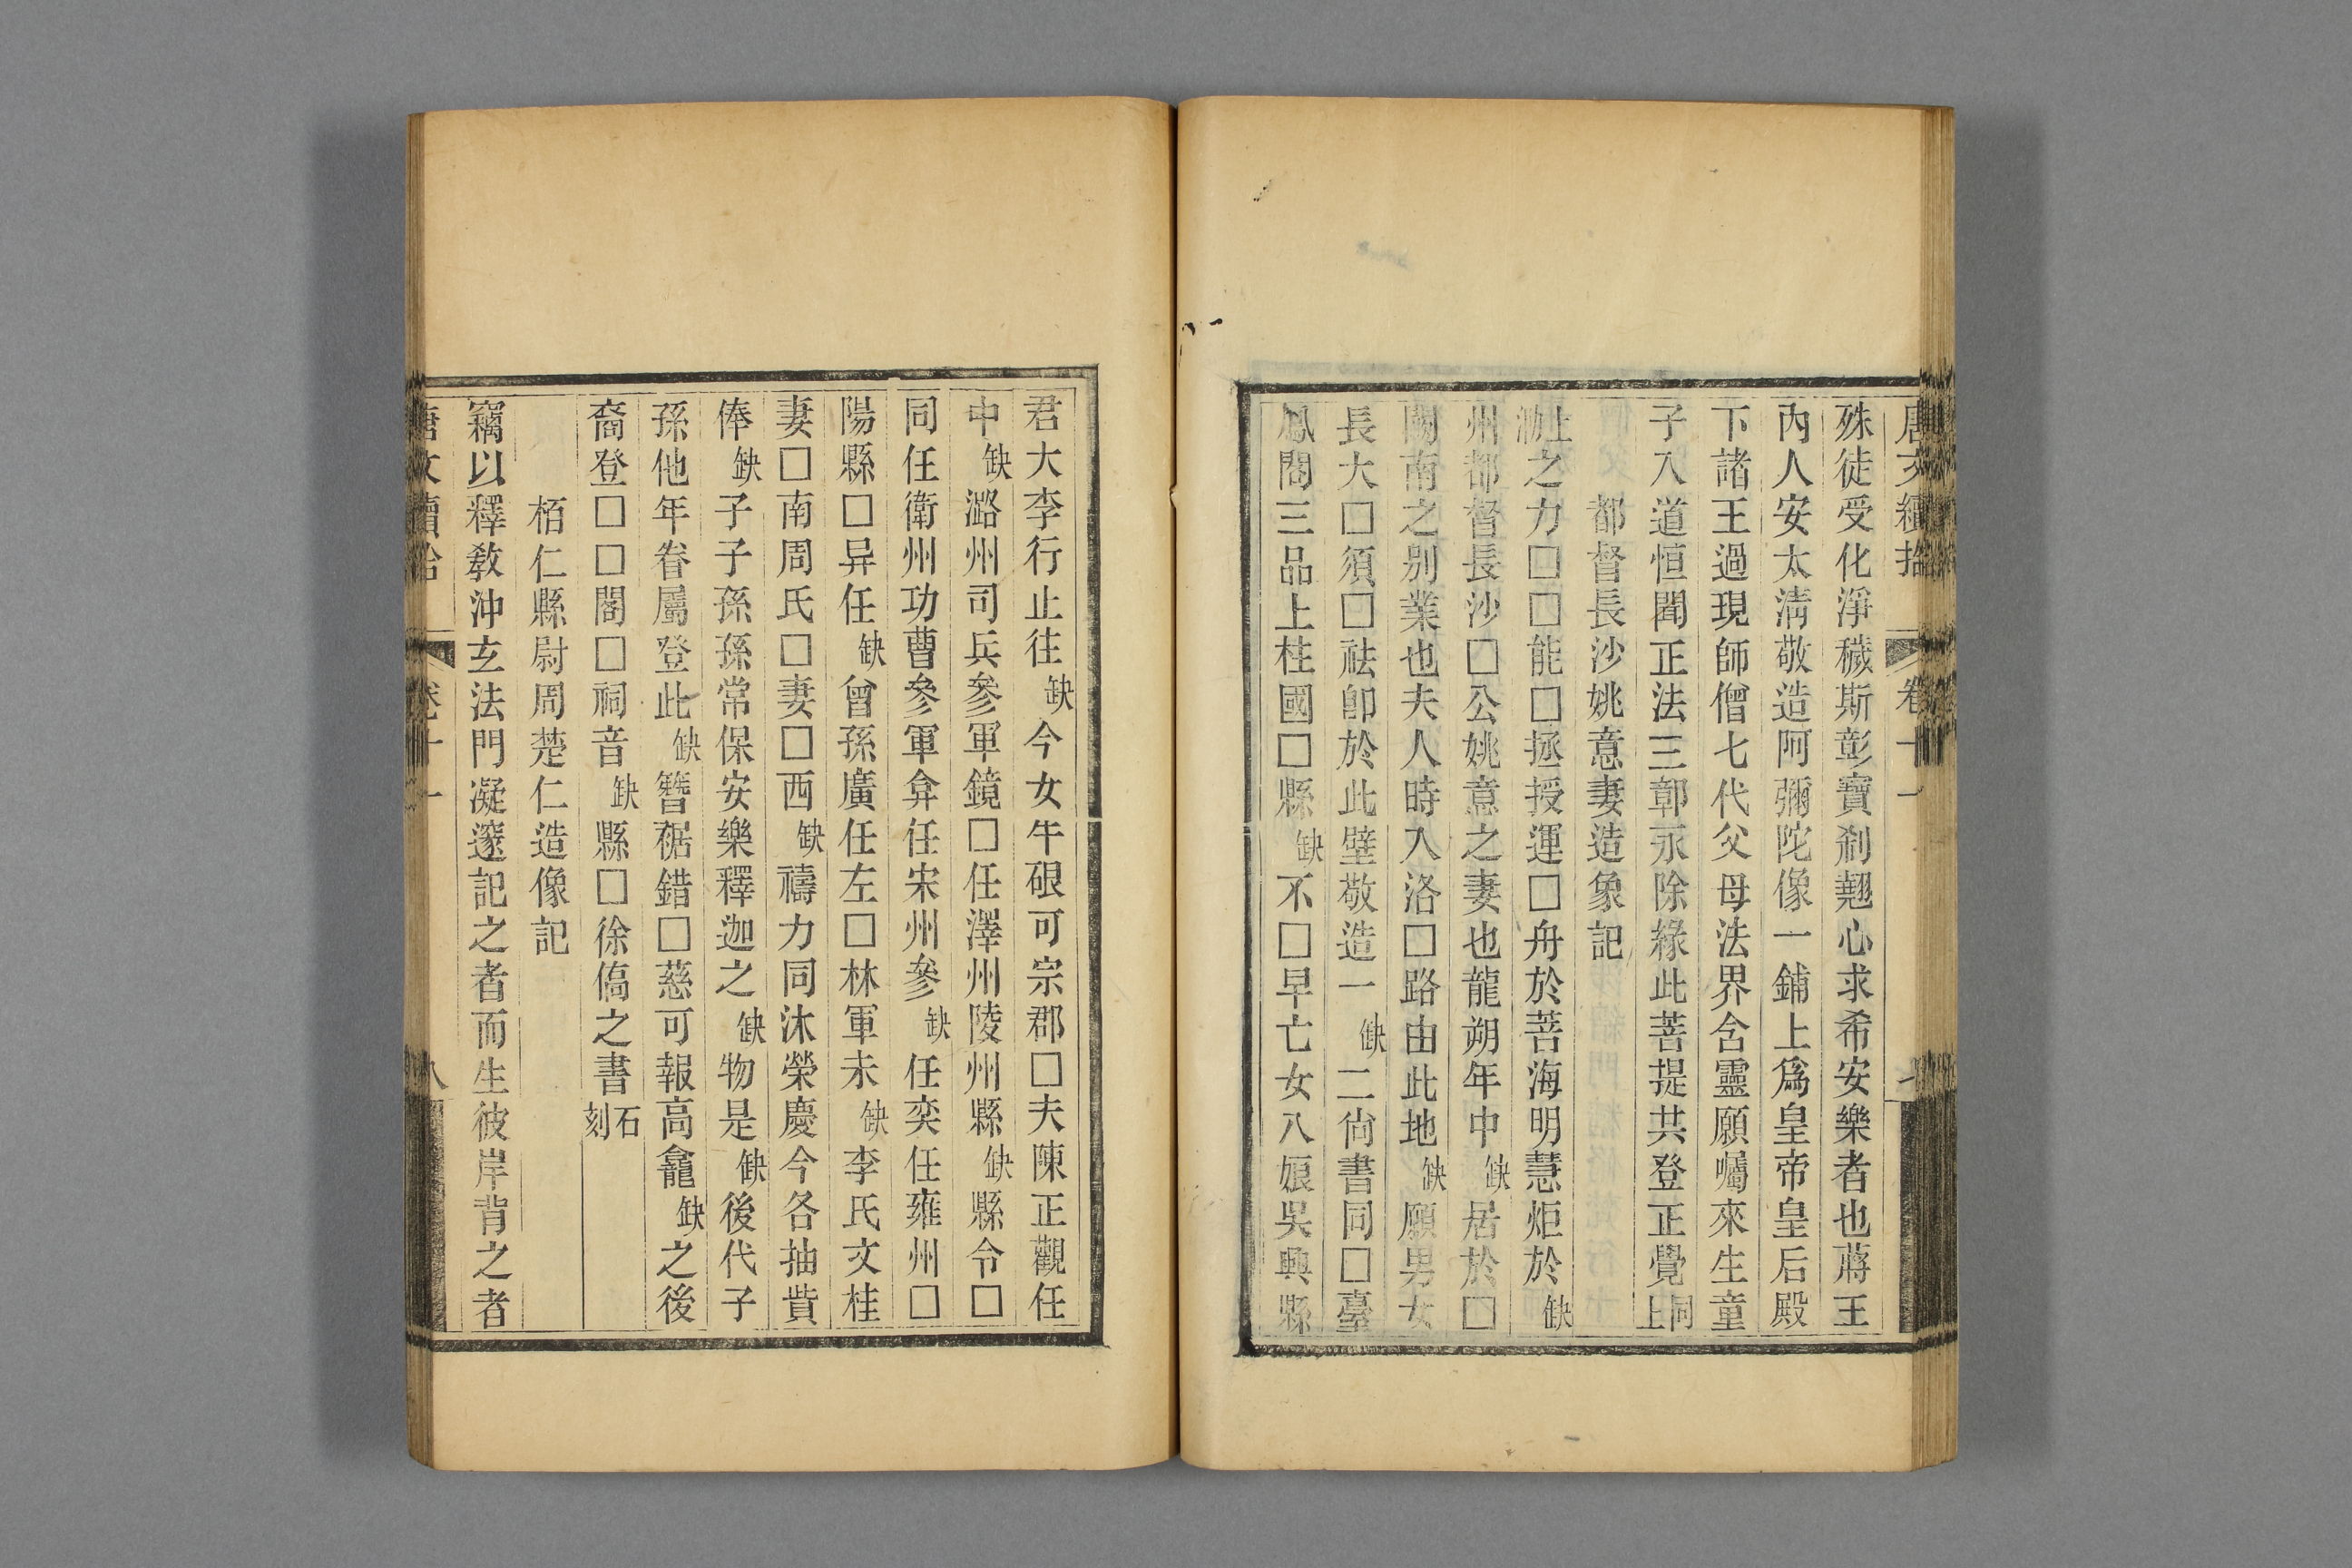 唐文續拾 卷十一
殊徒受化淨穢斯彰寶刹翹心求希安樂者也蔣王
內人安太淸敬造阿彌陀像一鋪上爲皇帝皇后殿
下諸王過現師僧七代父母法界含靈願囑來生童
子入道恒聞正法三鄣永除緣此菩提共登正覺同上
都督長沙姚意妻造象記
上泐之力□□能□拯授運□舟於菩海明慧炬於缺
州都督長沙□公姚意之妻也龍朔年中缺居於□
闕南之別業也夫人時入洛□路由此地缺願男女
長大□須□祛卽於此壁敬造一缺二尙書同□臺
鳳閣三品上柱國□縣缺不□早亡女八娘吳興縣
君大李行止往缺今女牛硍可宗郡□夫陳正觀任
中缺潞州司兵參軍鏡□任澤州陵州縣缺縣令□
同任衛州功曹參軍弇任宋州參缺任奕任雍州□
陽縣□异任缺曾孫廣任左□林軍未缺李氏文桂
妻□南周氏□妻□西缺禱力同沐榮慶今各抽貲
俸缺子子孫孫常保安樂釋迦之缺物是缺後代子
孫他年眷屬登此缺簪裾錯□慈可報高龕缺之後
裔登□□閣□祠音缺縣□徐僑之書石刻
栢仁縣尉周楚仁造像記
竊以釋敎沖玄法門凝邃記之者而生彼岸背之者
唐文續拾 卷十一 八